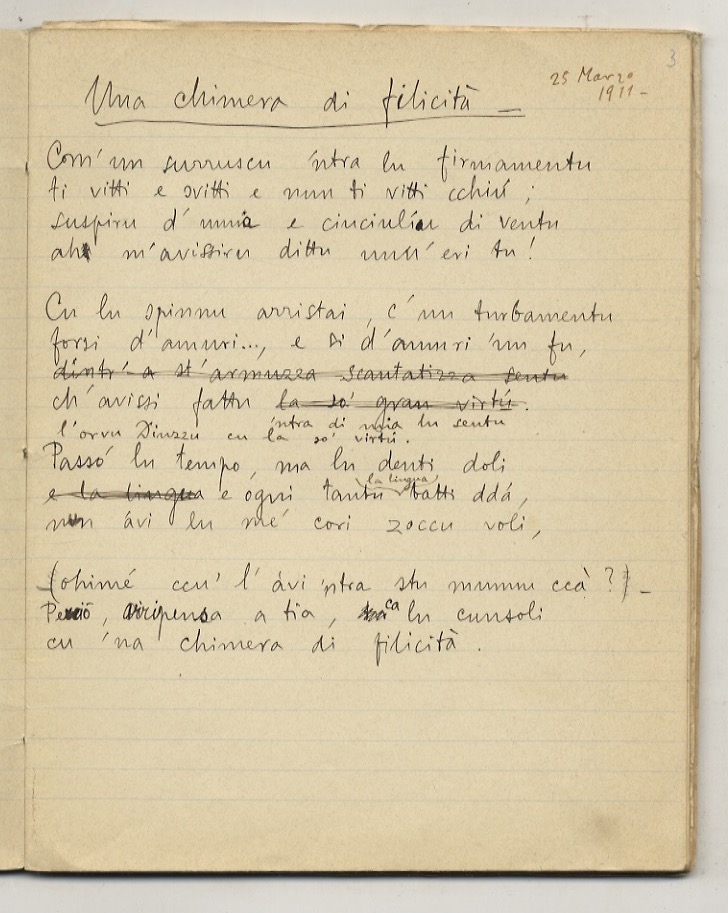 3
25 Marzo
1911-
Una chimera di filicità -
Com' un surruscu 'ntra lu firmamentu
ti vitti e svitti e nun ti vitti cchiú ;
suspiru d'umra e ciuciulíu di ventu
ah m'avissiru dittu unn'eri tu!
Cu lu spinnu arristai, c' un turbamentu
forsi d'amuri..., e si d'amuri 'un fu,
dintr' a st'armuzza scantatizza sentu
ch'avissi fattu la so' gran virtú.
'ntra di mia lu sentu
l'orvu Diuzzu cu la so' virtú.
Passó lu tempo, ma lu denti doli
la lingua
e la lingua e ogni tantu batti ddá,
nun ávi lu mé cori zoccu voli,
(ohimé ccu' l' ávi 'ntra stu munnu ccà ?) -
Perciò, ripensa a tia, ca lu cunsoli
cu 'na chimera di filicità .